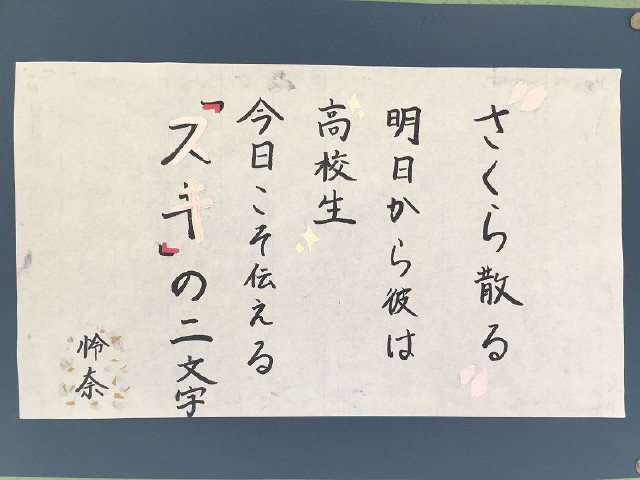 さくら散る
明日から彼は
高校生
今日こそ伝える
「スキ」の二文字
怜奈